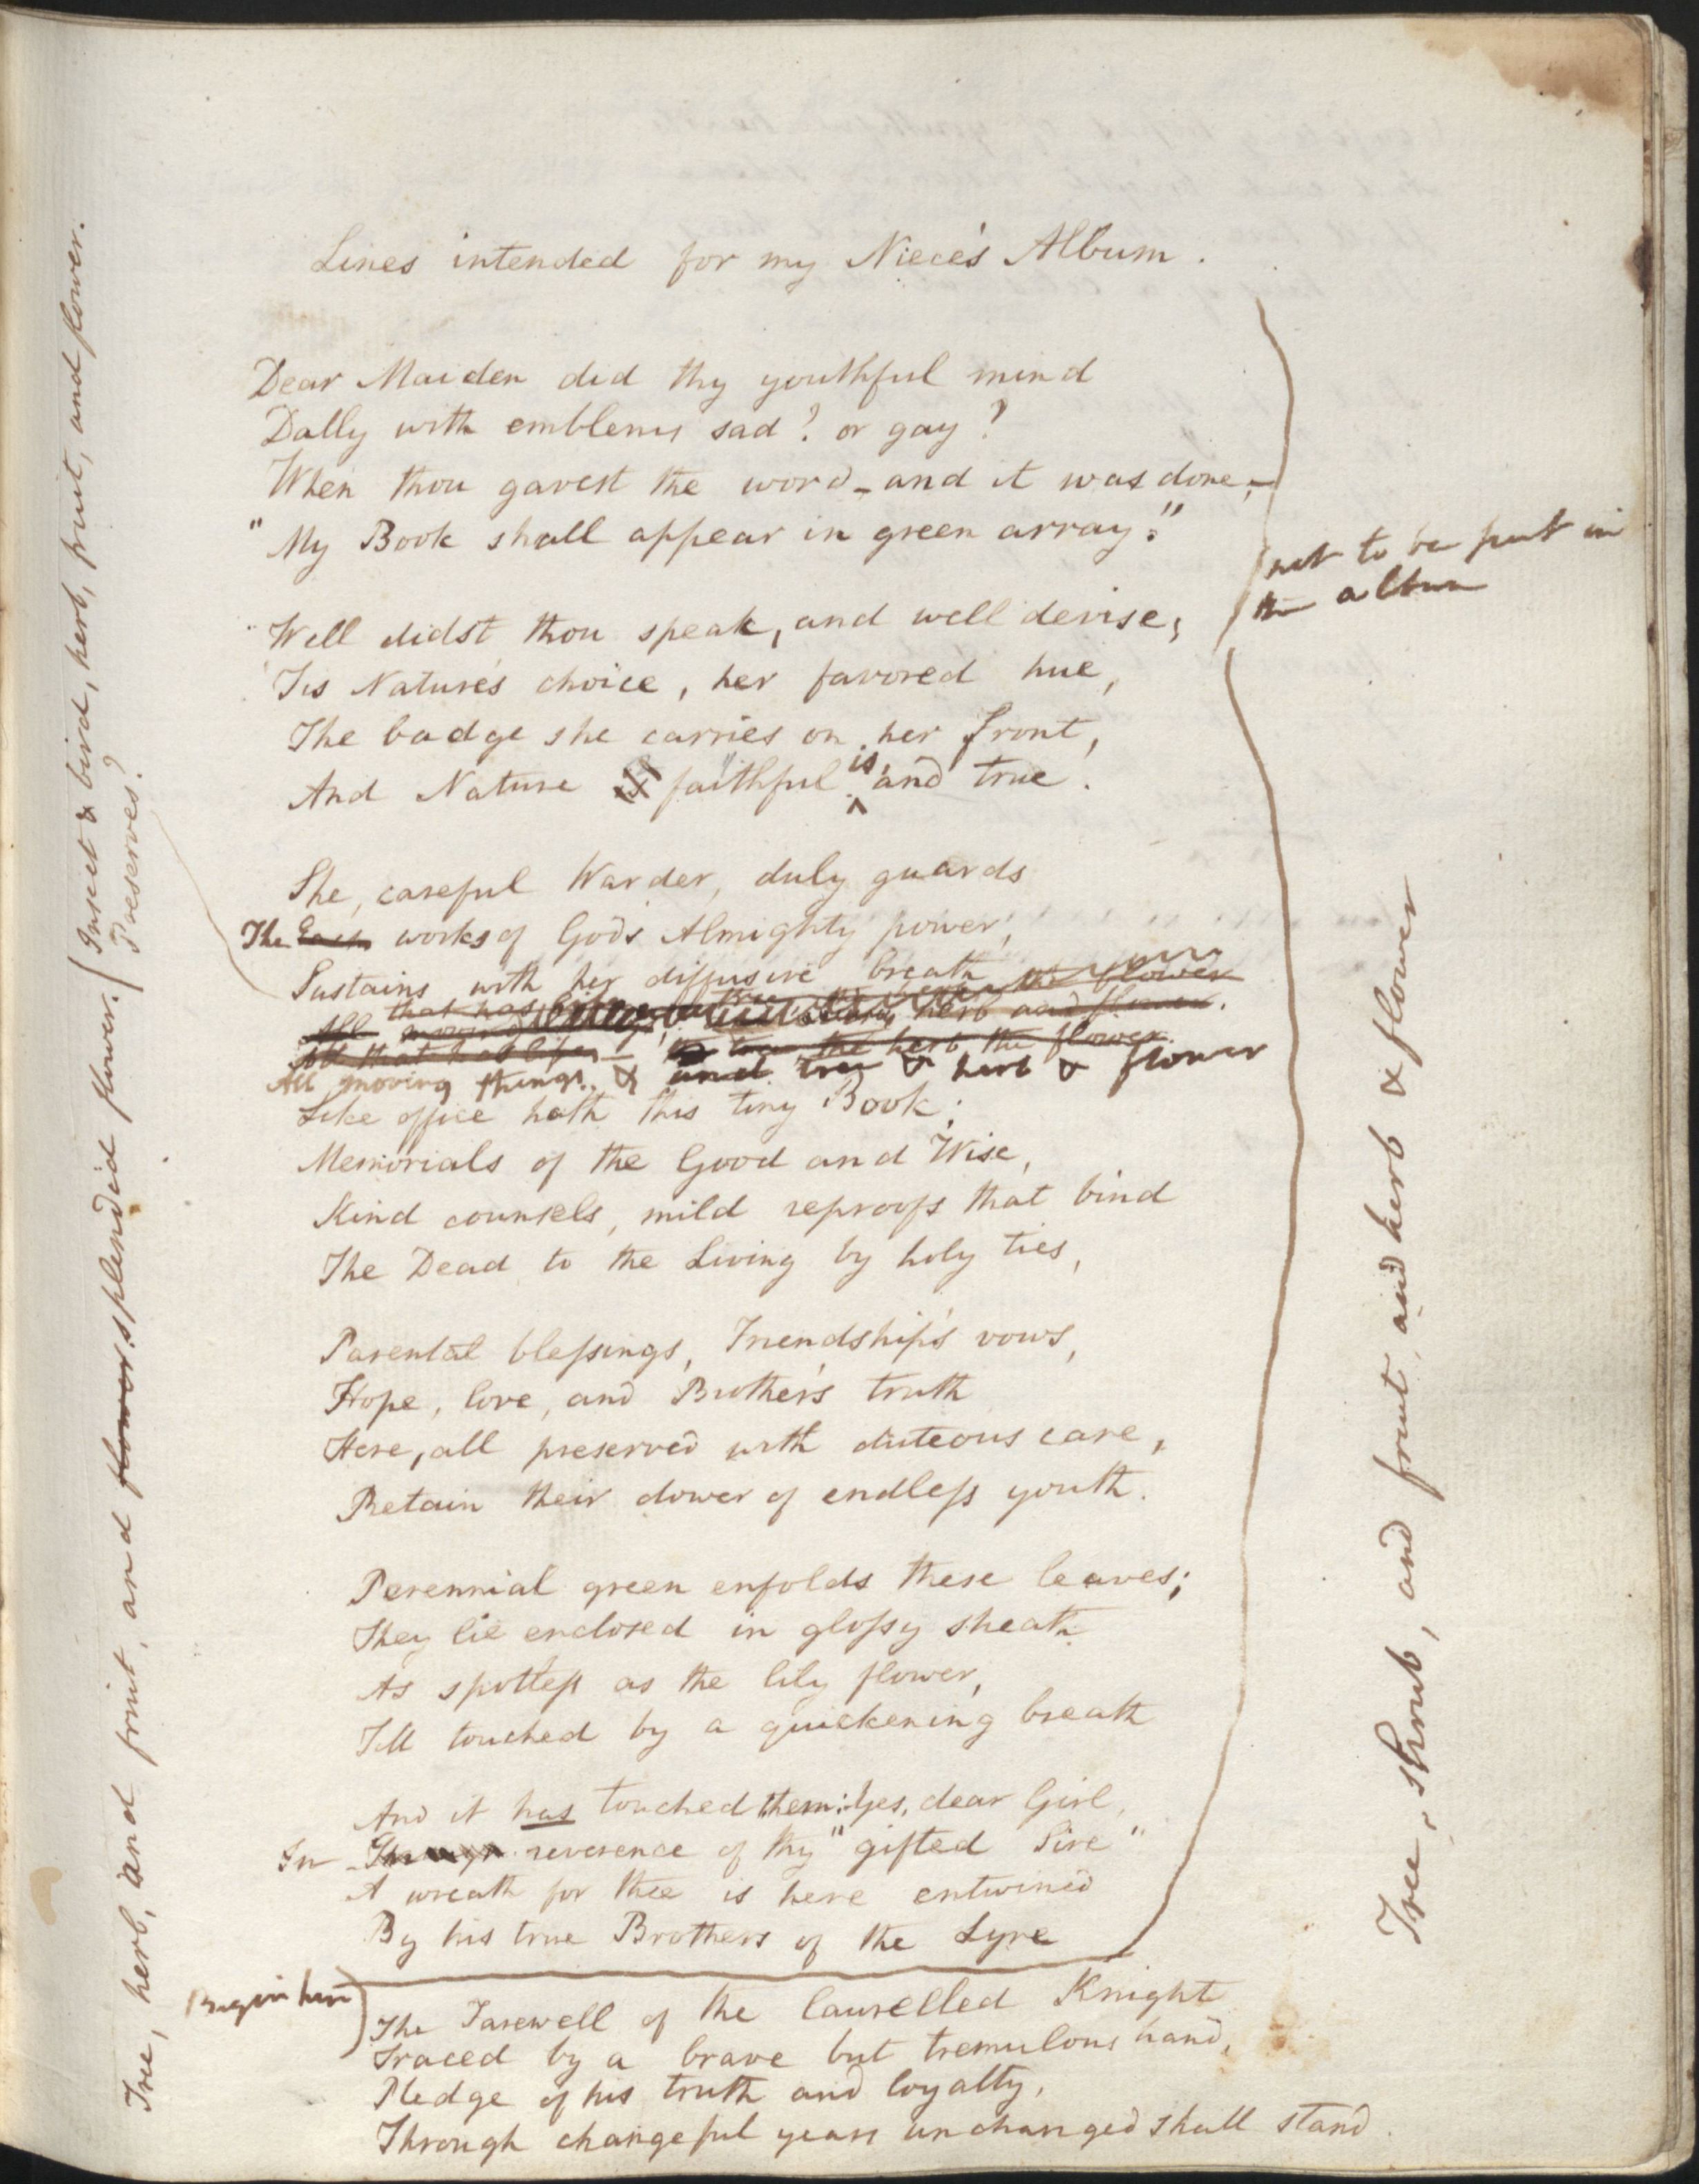 Lines intended for my Niece's Album.
Dear Maiden did thy youthful mind
Dally with emblems sad? or gay?
When thou gavest the word - and it was done, -
"My Book shall appear in green array."
not to be put in
the album
Well didst thou speak, and well devise;
'Tis Nature's choice, her favored hue,
The badge she carries on her front,
And Nature faithful is, and true.
She, careful Warder, duly guards
The Each works of God's Almighty power,
Sustains with her diffusive breath
the flower
that has herb and flower.
All moving
All that has life, tree the herb the flower
All moving things & and tree & herb & flower
Like office hath this tiny Book;
Memorials of the Good and Wise,
Kind counsels, mild reproofs that bind
The Dead to the Living by holy ties,
Parental blessings, Friendship's vows,
Hope, love, and Brother's truth
Here, all preserved with duteous care,
Retain their dower of endless youth.
Perennial green enfolds these leaves;
They lie enclosed in glossy sheath
As spotless as the lily flower,
Till touched by a quickening breath
And it has touched them: Yes, dear Girl,
In Through reverence of thy "gifted Sire"
A wreath for thee is here entwined
By his true Brothers of the Lyre
Begin here
The Farewell of the laurelled Knight
Traced by a brave but tremulous hand,
Pledge of his truth and loyalty,
Through changeful years unchanged shall stand.
Tree, herb, and fruit, and flower splendid flower.
Insect & bird, herb, fruit, and flower.
Preserves?
Tree, shrub, and fruit, and herb & flower